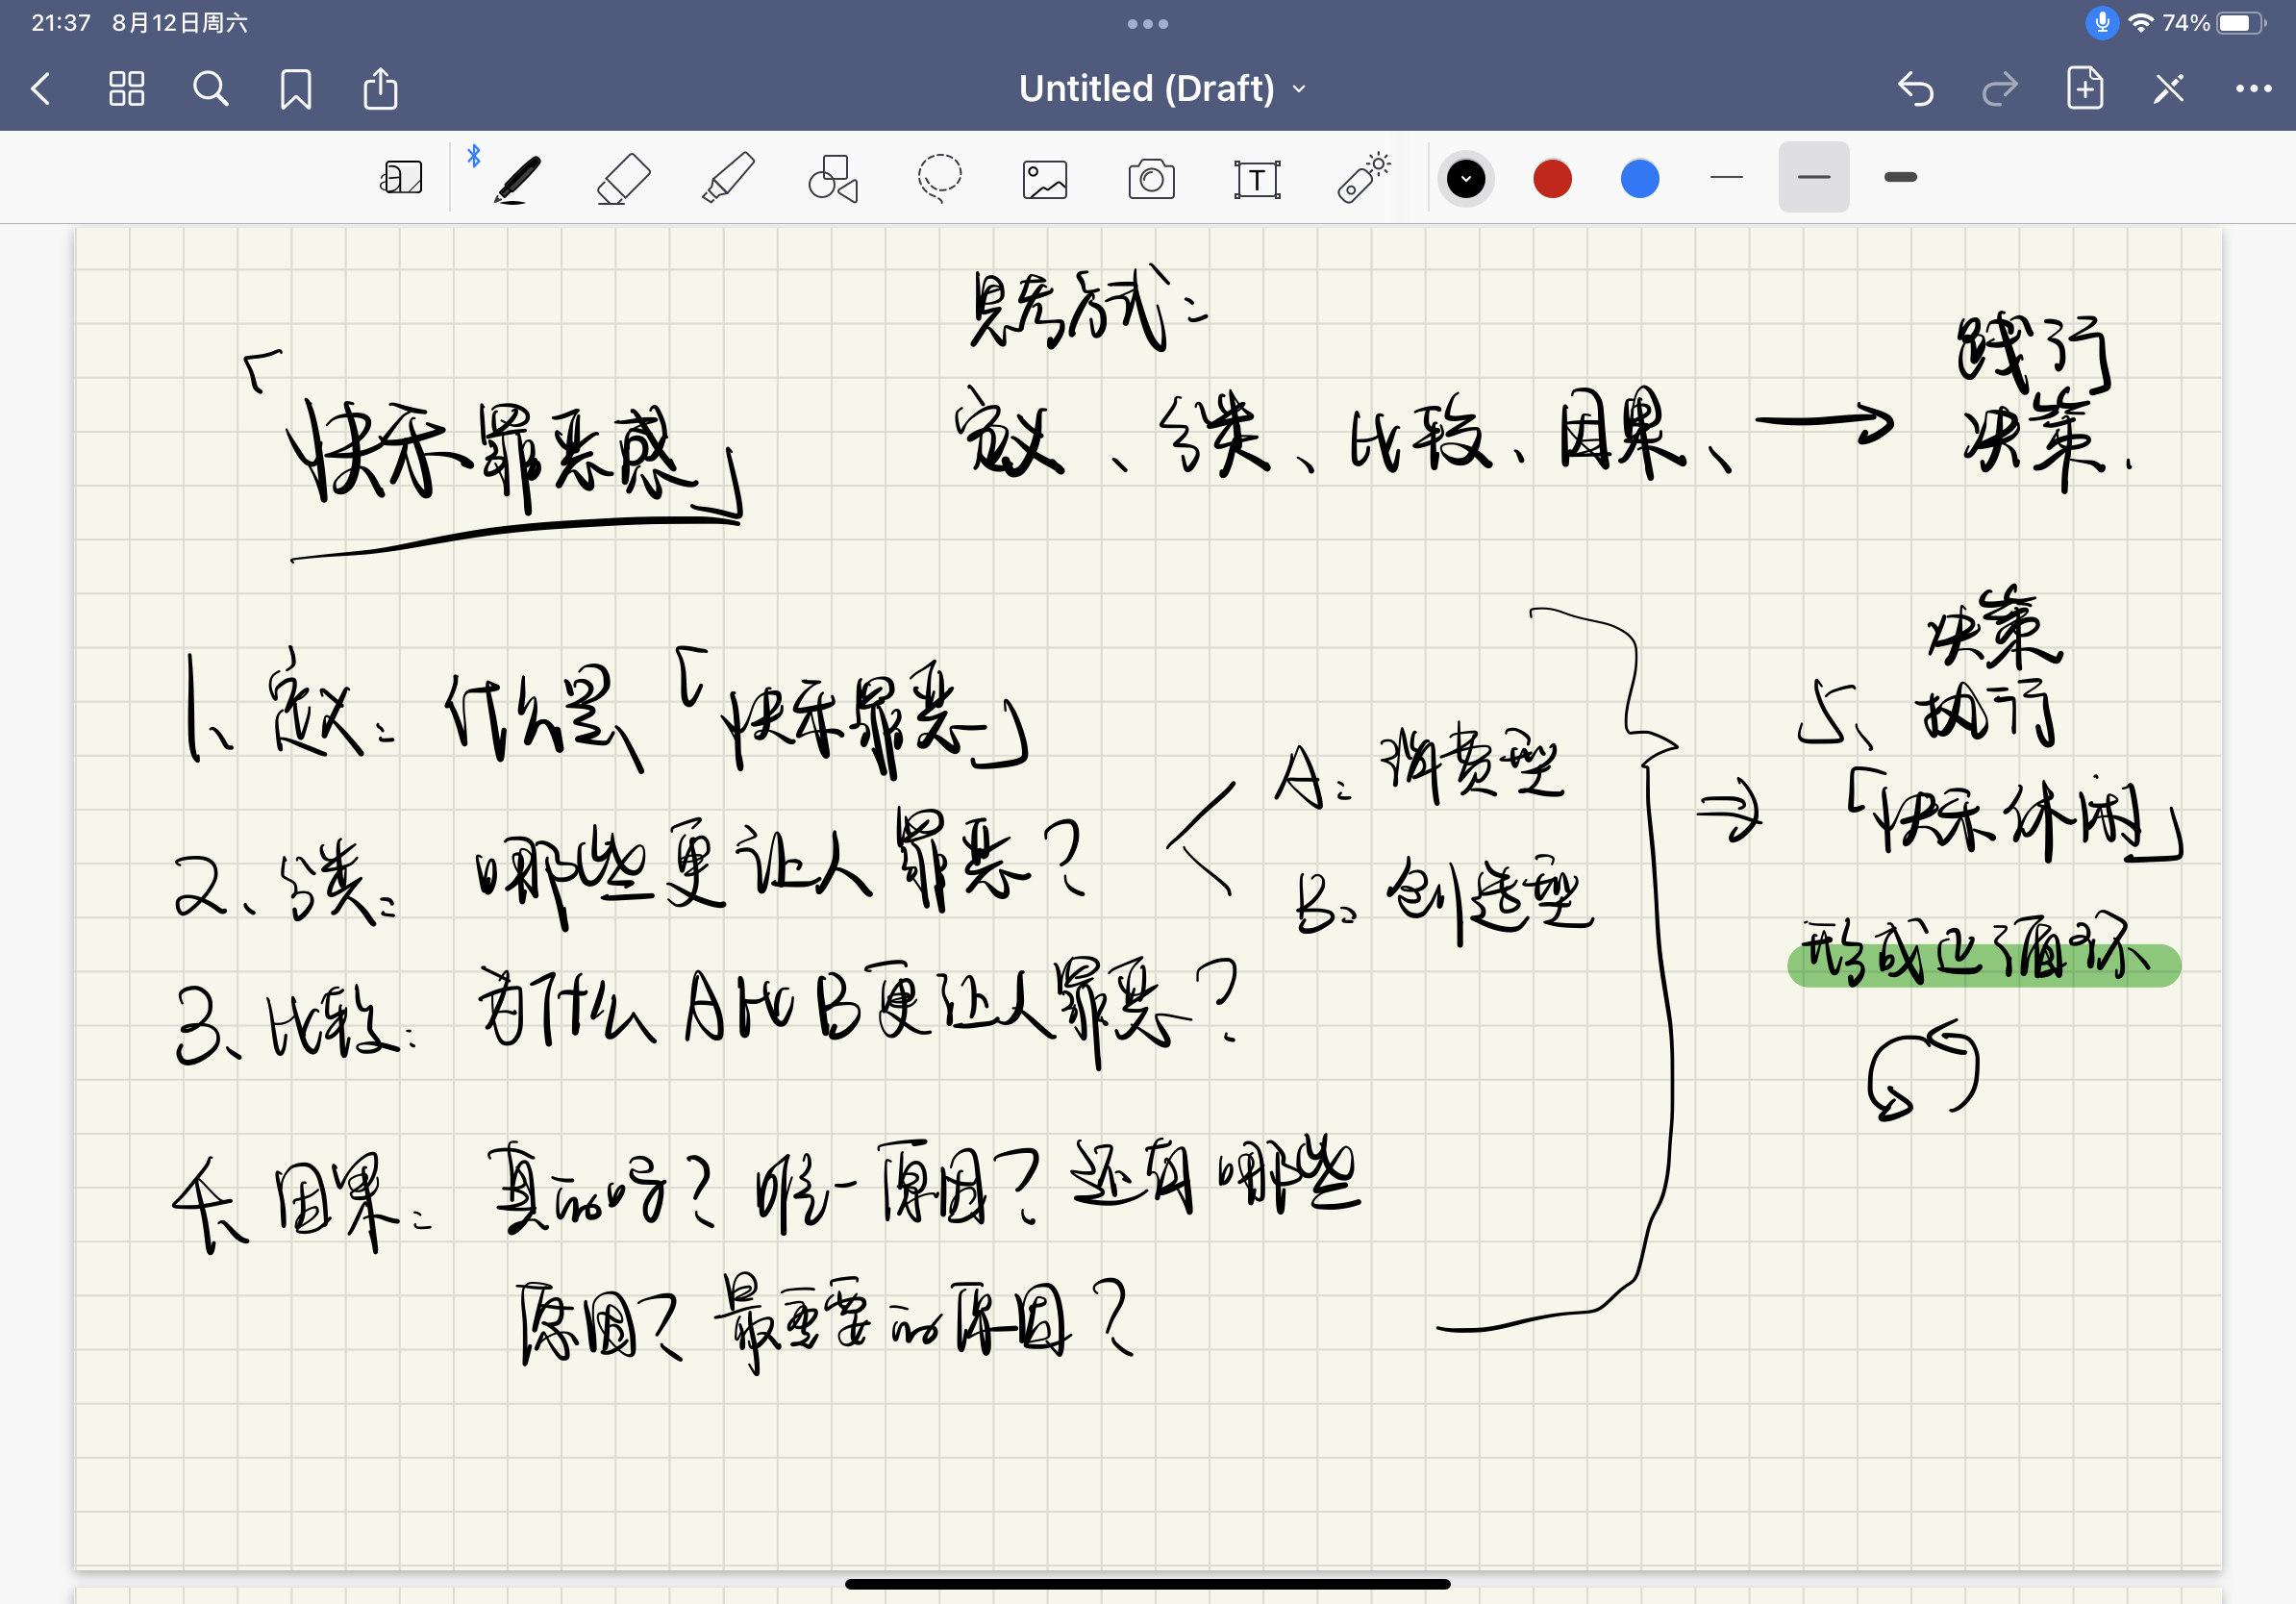 21:37 8月12日周六
74%
Untitled (Draft)
T
思考方式：
「快乐罪恶感」
定义、分类、比较、因果、
践行
决策.
1、定义：什么是「快乐罪恶」
2、分类：哪些更让人罪恶？
A：消费型
B：创造型
3、比较：为什么A比B更让人罪恶？
4、因果：真的吗？唯一原因？还有哪些
原因？最重要的原因？
决策
5、执行
「快乐休闲」
形成正循环